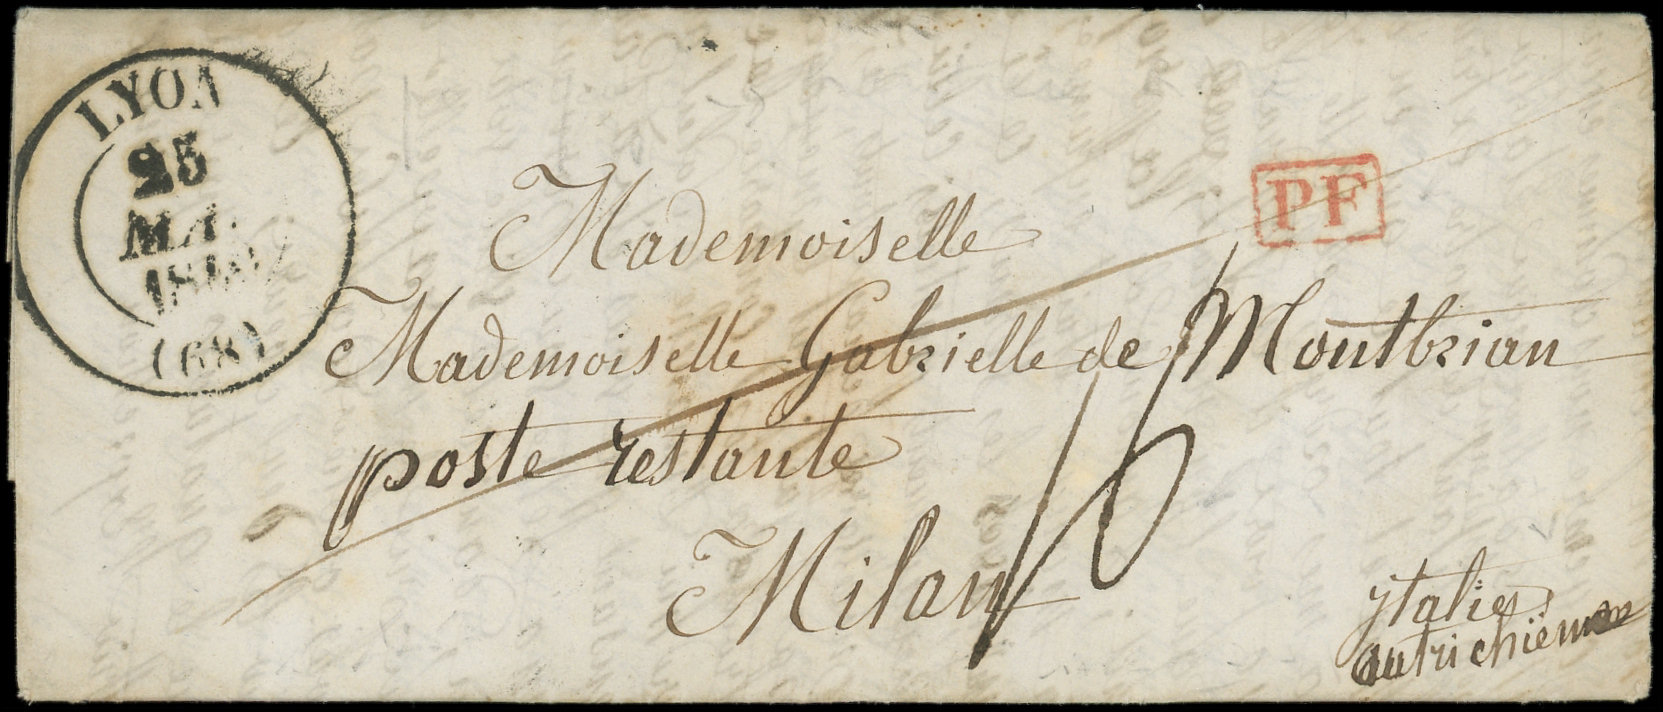 LYON
25
MAI
(68)
PF
Mademoiselle
Mademoiselle Gabrielle de Montbrian
poste restante
Milan
16
ytalie
autrichienne